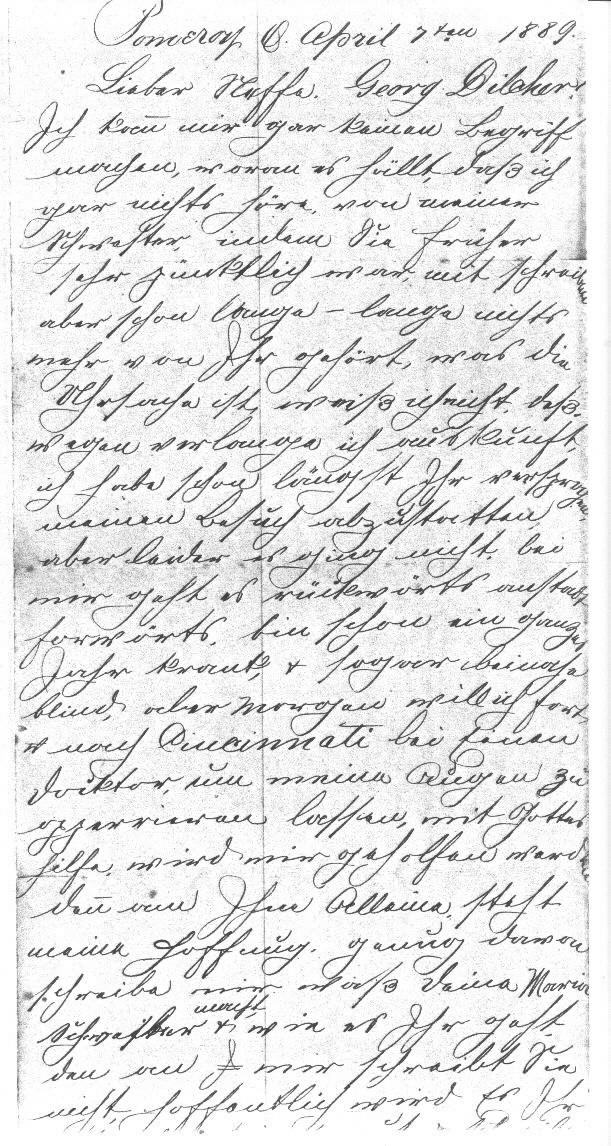 Pomeroy O. April 7ten 1889.
Lieber Neffe. Georg Dilcher!
Ich kan̄ mir gar keinen Begriff
machen, woran es fällt, daß ich
gar nichts höre, von meiner
Schwester, indem Sie früher
sehr pünktlich war, mit schreiben
aber schon lange – lange nichts
mehr von Ihr gehört, was die
Uhrsache ist, weiß ich nicht, deß-
wegen verlange ich auskunft,
ich habe schon längst Ihr versprochen,
meinen Besuch abzustatten,
aber leider es ging nicht, bei
mir geht es rückwärts anstatt
forwärts, bin schon ein ganzes
Jahr krank, & sogar beinahe
blind, aber Morgen will ich fort
nach Cincinnati bei Einen
Docktor, um meine Augen zu
opperrieren lassen, mit Gottes
hilfe, wird mir geholfen werden
den̄ an Ihm Alleine, steht
meine Hoffnug. genug davon
schreibe mir waß deine Maria
Schwester macht & wie es Ihr geht
den an mir schreibt Sie
nicht, hoffentlich wird es Ihr